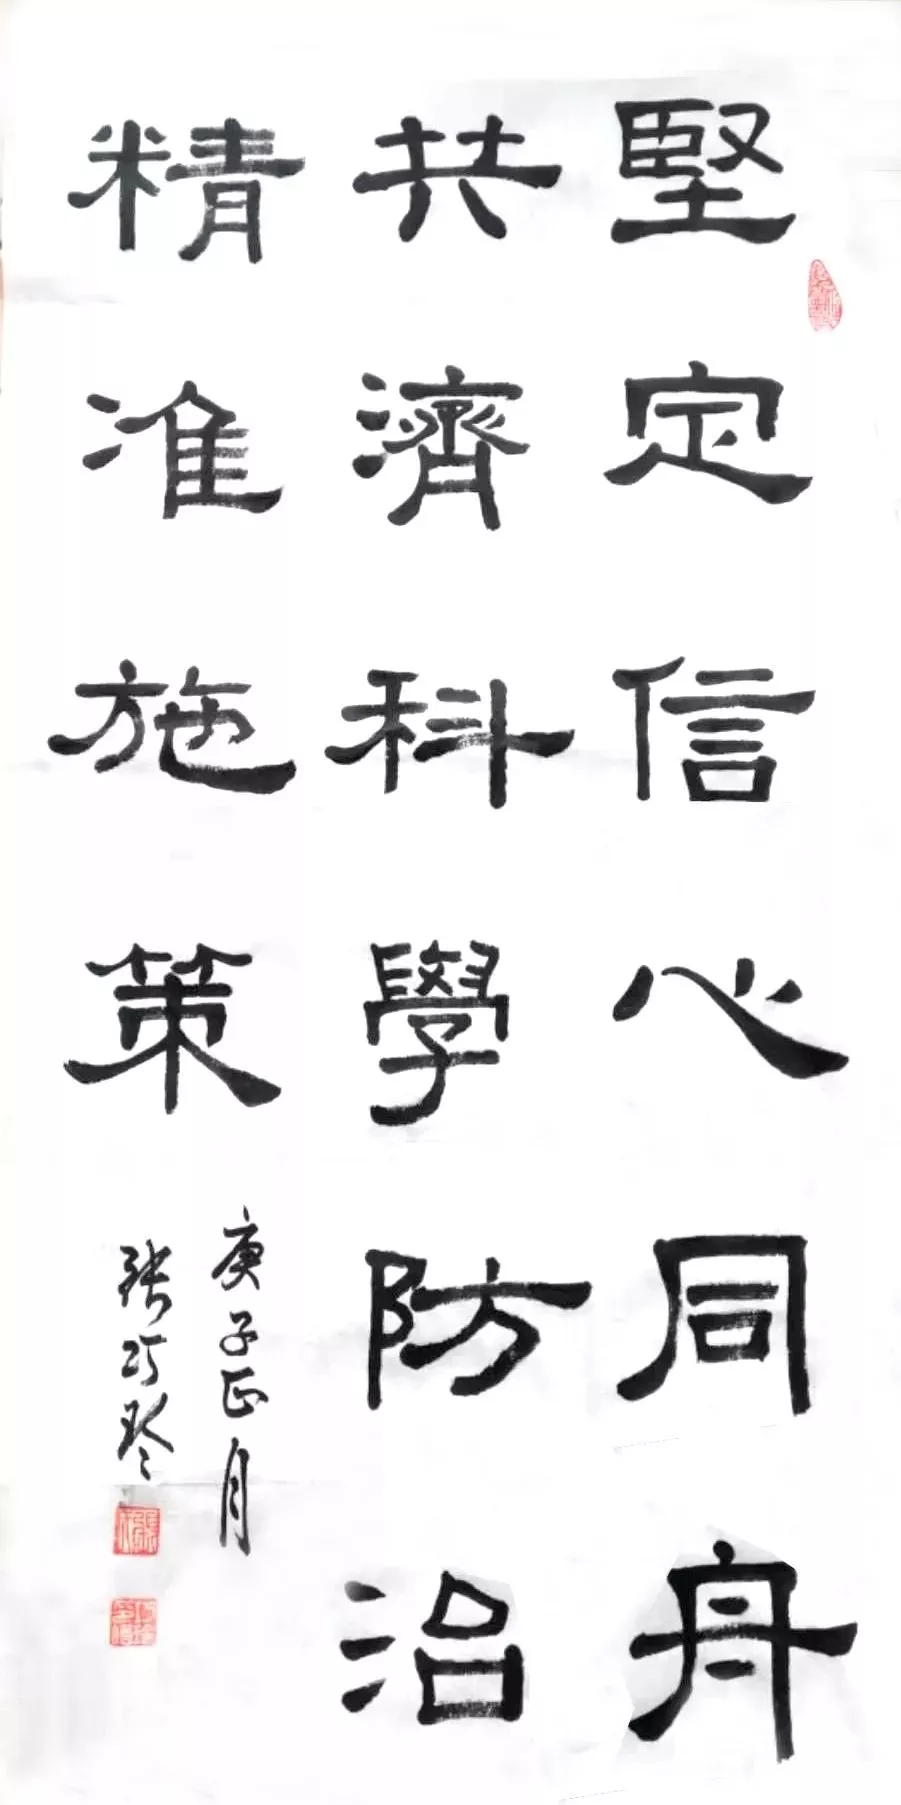 堅定信心同舟
共濟科學防治
精准施策
庚子正月
張巧琴